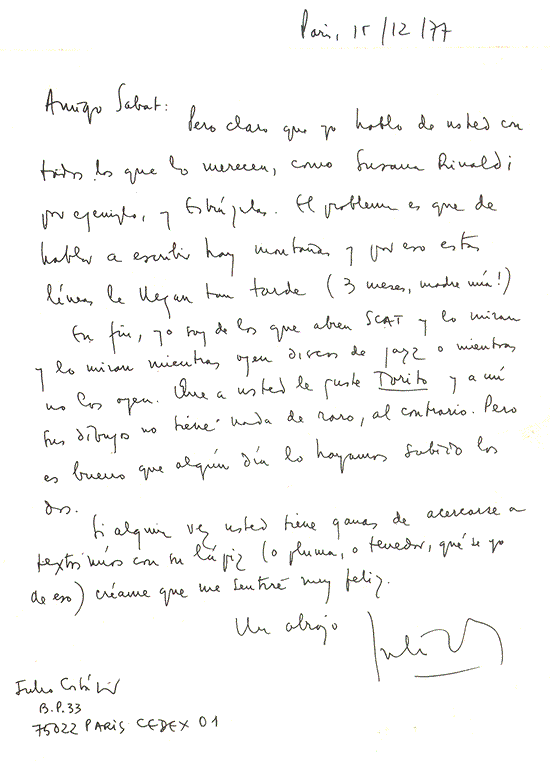 Paris, 15/12/77
Amigo Sabat:
Pero claro que yo hablo de usted con
todos los que lo merecen, como Susana Rinaldi
por ejemplo, y
El problema es que de
hablar a escribir hay montañas y por eso estas
líneas le llegan tan tarde (3 meses, madre mía!)
En fin, yo soy de los que abren SCAT y lo miran
y lo miran mientras oyen discos de jazz o mientras
no los oyen. Que a usted le guste Torito y a mí
sus dibujos no tiene nada de raro, al contrario. Pero
es bueno que algún día lo hayamos sabido los
dos.
Si alguna vez usted tiene ganas de acercarse a
textos míos con su lápiz (o pluma, o tenedor, qué sé yo
de eso) créame que me sentiré muy feliz.
Un abrazo
Julio
Julio Cortázar
B.P. 33
75022 PARIS CEDEX 01